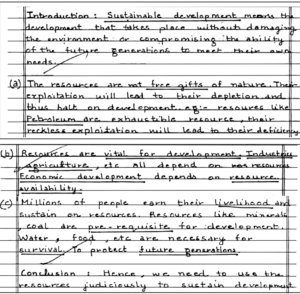 Introduction : Sustainable development means the
development that takes place without damaging
the environment or compromising the ability
of the future generations to meet their own
needs.
(a) The resources are not free gifts of nature. Their
exploitation will lead to their depletion and
thus halt on development. eg:- resources like
Petroleum are exhaustible resource, their
reckless exploitation will lead to their deficiency.
(b) Resources are vital for development. Industries
, agriculture, etc all depend on resources
Economic development depends on resource
availability.
(c) Millions of people earn their livelihood and
sustain on resources. Resources like minerals
, coal are pre-requisite for development.
Water, food, etc are necessary for
survival. To protect future generations,
Conclusion : Hence, we need to use the
resources judiciously to sustain development